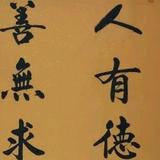 人有德
善無求